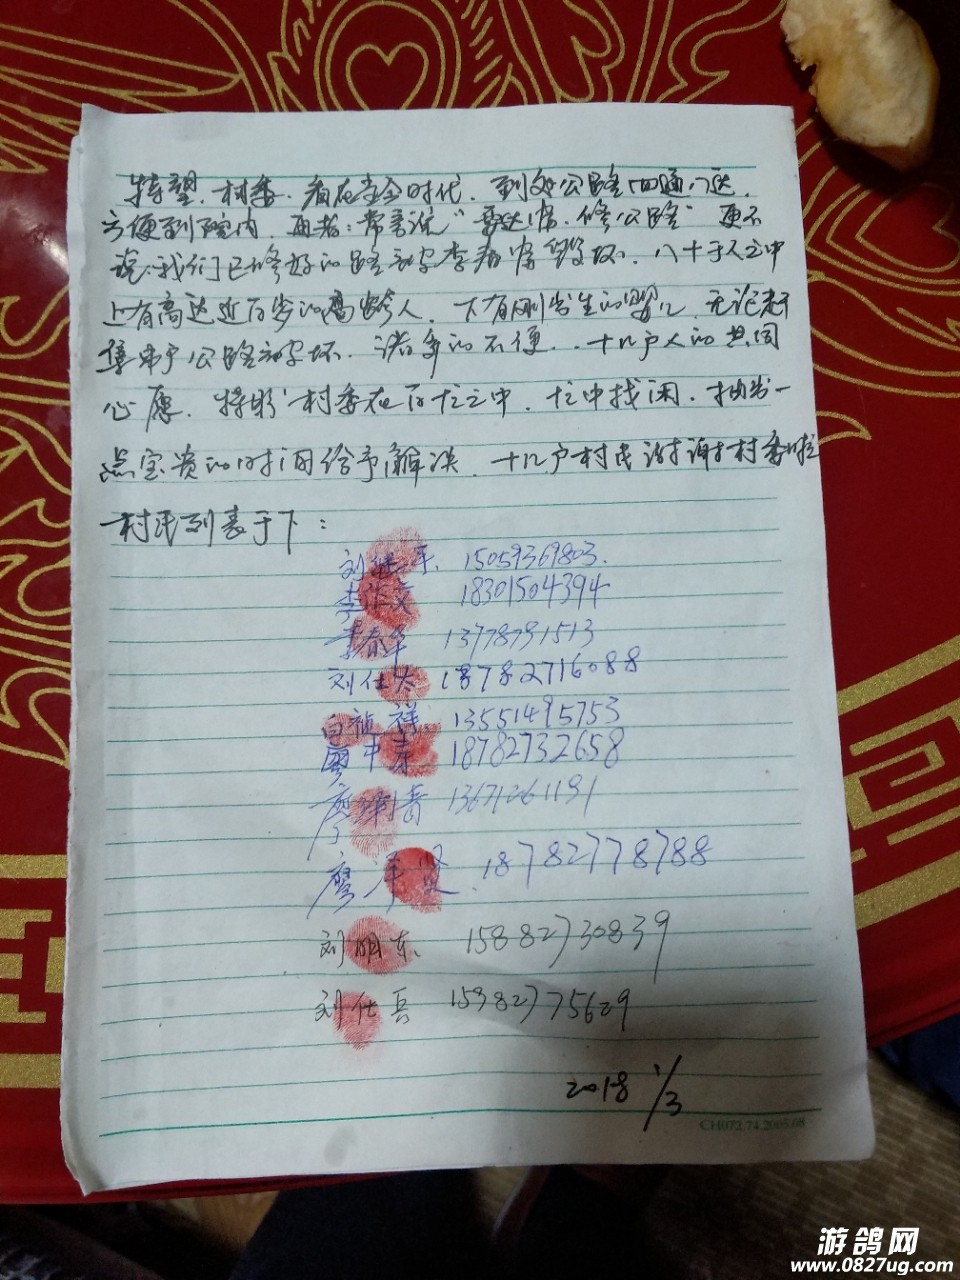 特望.村委.看在当今时代.到处公路四通八达.
方便到院内.再者:常言说"要致富.修公路"更不
说:我们已修好的路被李春富毁坏.八十多人之中
上有高达近百岁的高龄人.下有刚出生的婴儿.无论老
公路被破坏.诸多的不便..十几户人的共同
心愿.特盼村委在百忙之中.忙中找闲.抽出一
点宝贵的时间给予解决.十几户村民谢谢村委啦
村民列表于下:
刘 15059369803.
李 18301504394
李春华 13778791513
刘仕 18782716088
白祯祥 13551495753
中 18782732658
廖 13671261191
廖 18782778788
刘明东 15882730839
刘仕兵 15982775629
2018 1/3
CH072.74.2005.08
游鸽网
www.0827ug.com